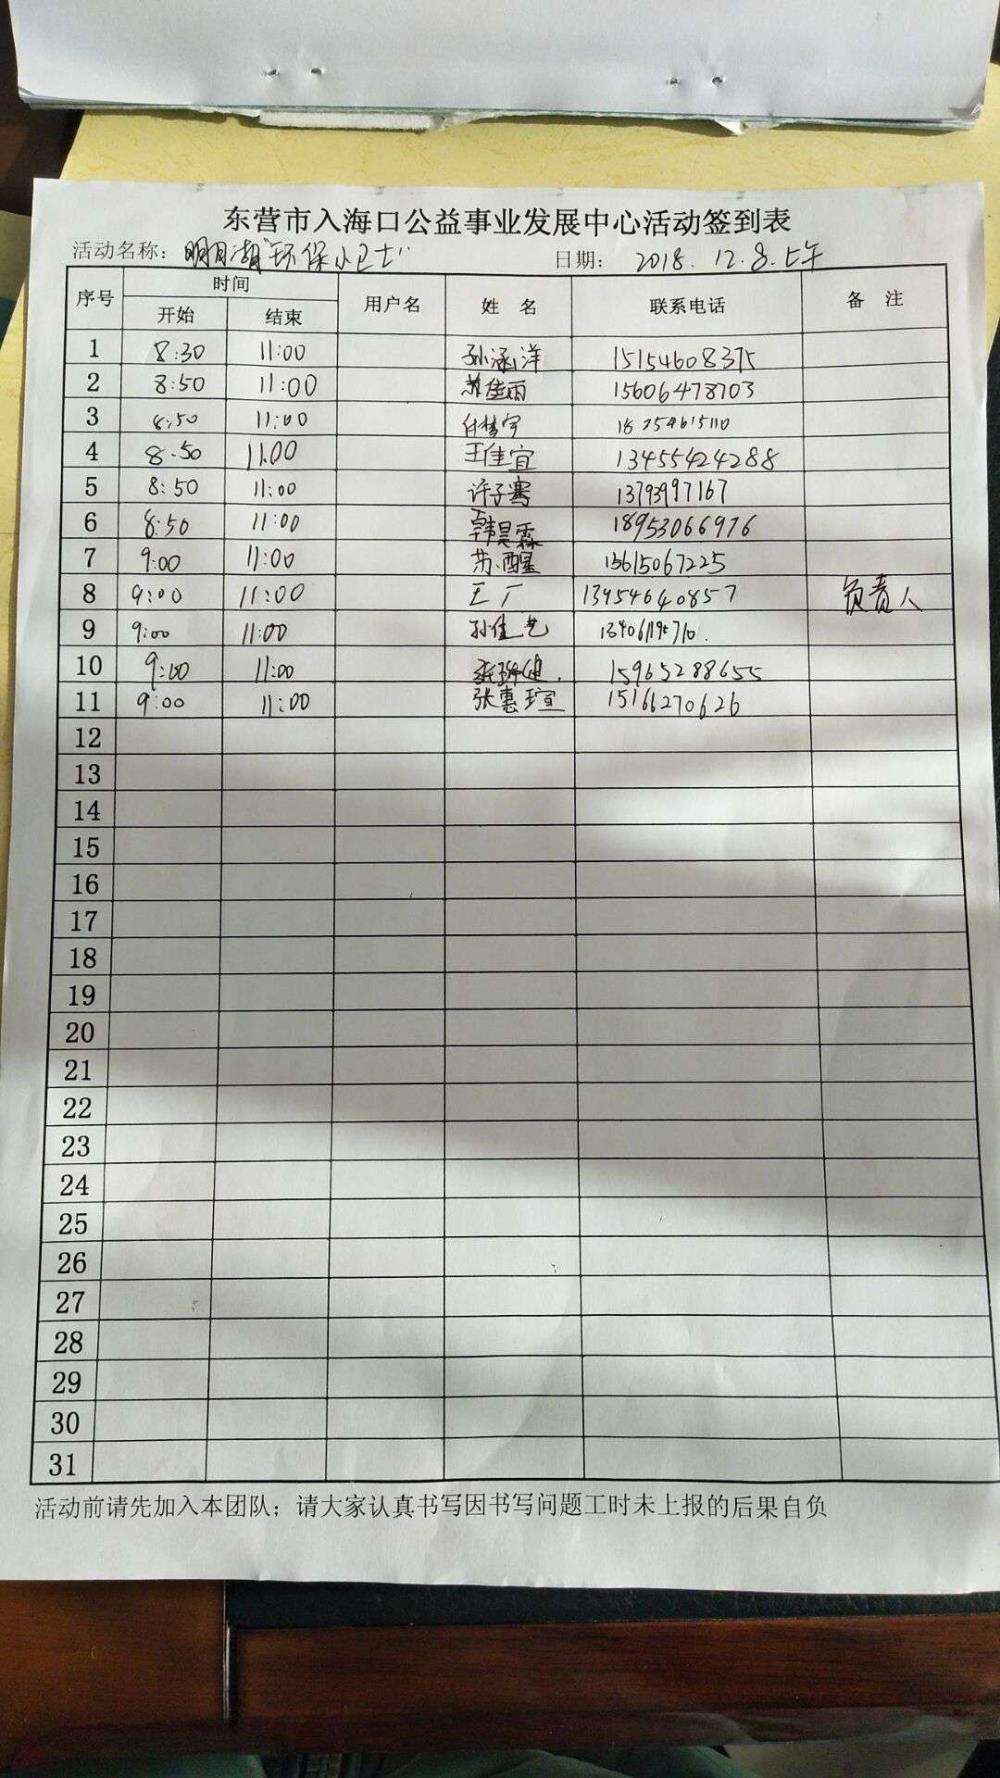 东营市入海口公益事业发展中心活动签到表
活动名称：明月湖“环保小卫士” 日期：2018.12.8.上午
序号 时间 用户名 姓名 联系电话 备注
开始 结束
1 8:30 11:00 孙涵洋 15154608375
2 8:50 11:00 苏佳雨 15606478703
3 8:50 11:00 付梦宇
4 8.50 11.00 王佳宜 13455424288
5 8:50 11:00 许子骞 13793997167
6 8:50 11:00 韩昊霖 18953066976
7 9:00 11:00 苏醒 13615067225
8 9:00 11:00 王广 13954640857 负责人
9 9:00 11:00 孙佳艺
10 9:00 11:00 15965288655
11 9:00 11:00 张惠瑄 15166270626
12
13
14
15
16
17
18
19
20
21
22
23
24
25
26
27
28
29
30
31
活动前请先加入本团队；请大家认真书写因书写问题工时未上报的后果自负